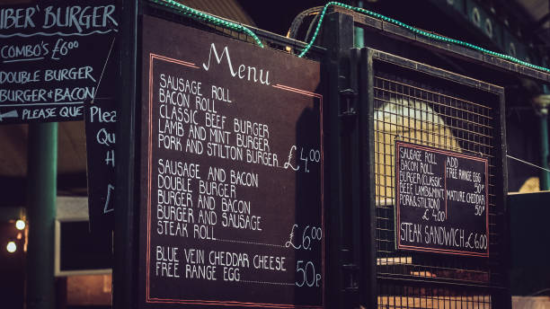 IBER' BURGER
COMBO'S £6.00
DOUBLE BURGER
BURGER & BACON
PLEASE QUE
Plea
Qu
Menu
SAUSAGE ROLL
BACON ROLL
CLASSIC BEEF BURGER
LAMB AND MINT BURGER
PORK AND STILTON BURGER
£4.00
SAUSAGE AND BACON
DOUBLE BURGER
BURGER AND BACON
BURGER AND SAUSAGE
STEAK ROLL
£6.00
BLUE VEIN CHEDDAR CHEESE
FREE RANGE EGG
50P
SAUSAGE ROLL
BACON ROLL
BURGER(CLASSIC
BEEF, LAMB&MINT
PORK& STILTON)
£4.00
ADD
FREE RANGE EGG
50P
MATURE CHEDDAR
50P
STEAK SANDWICH £6.00